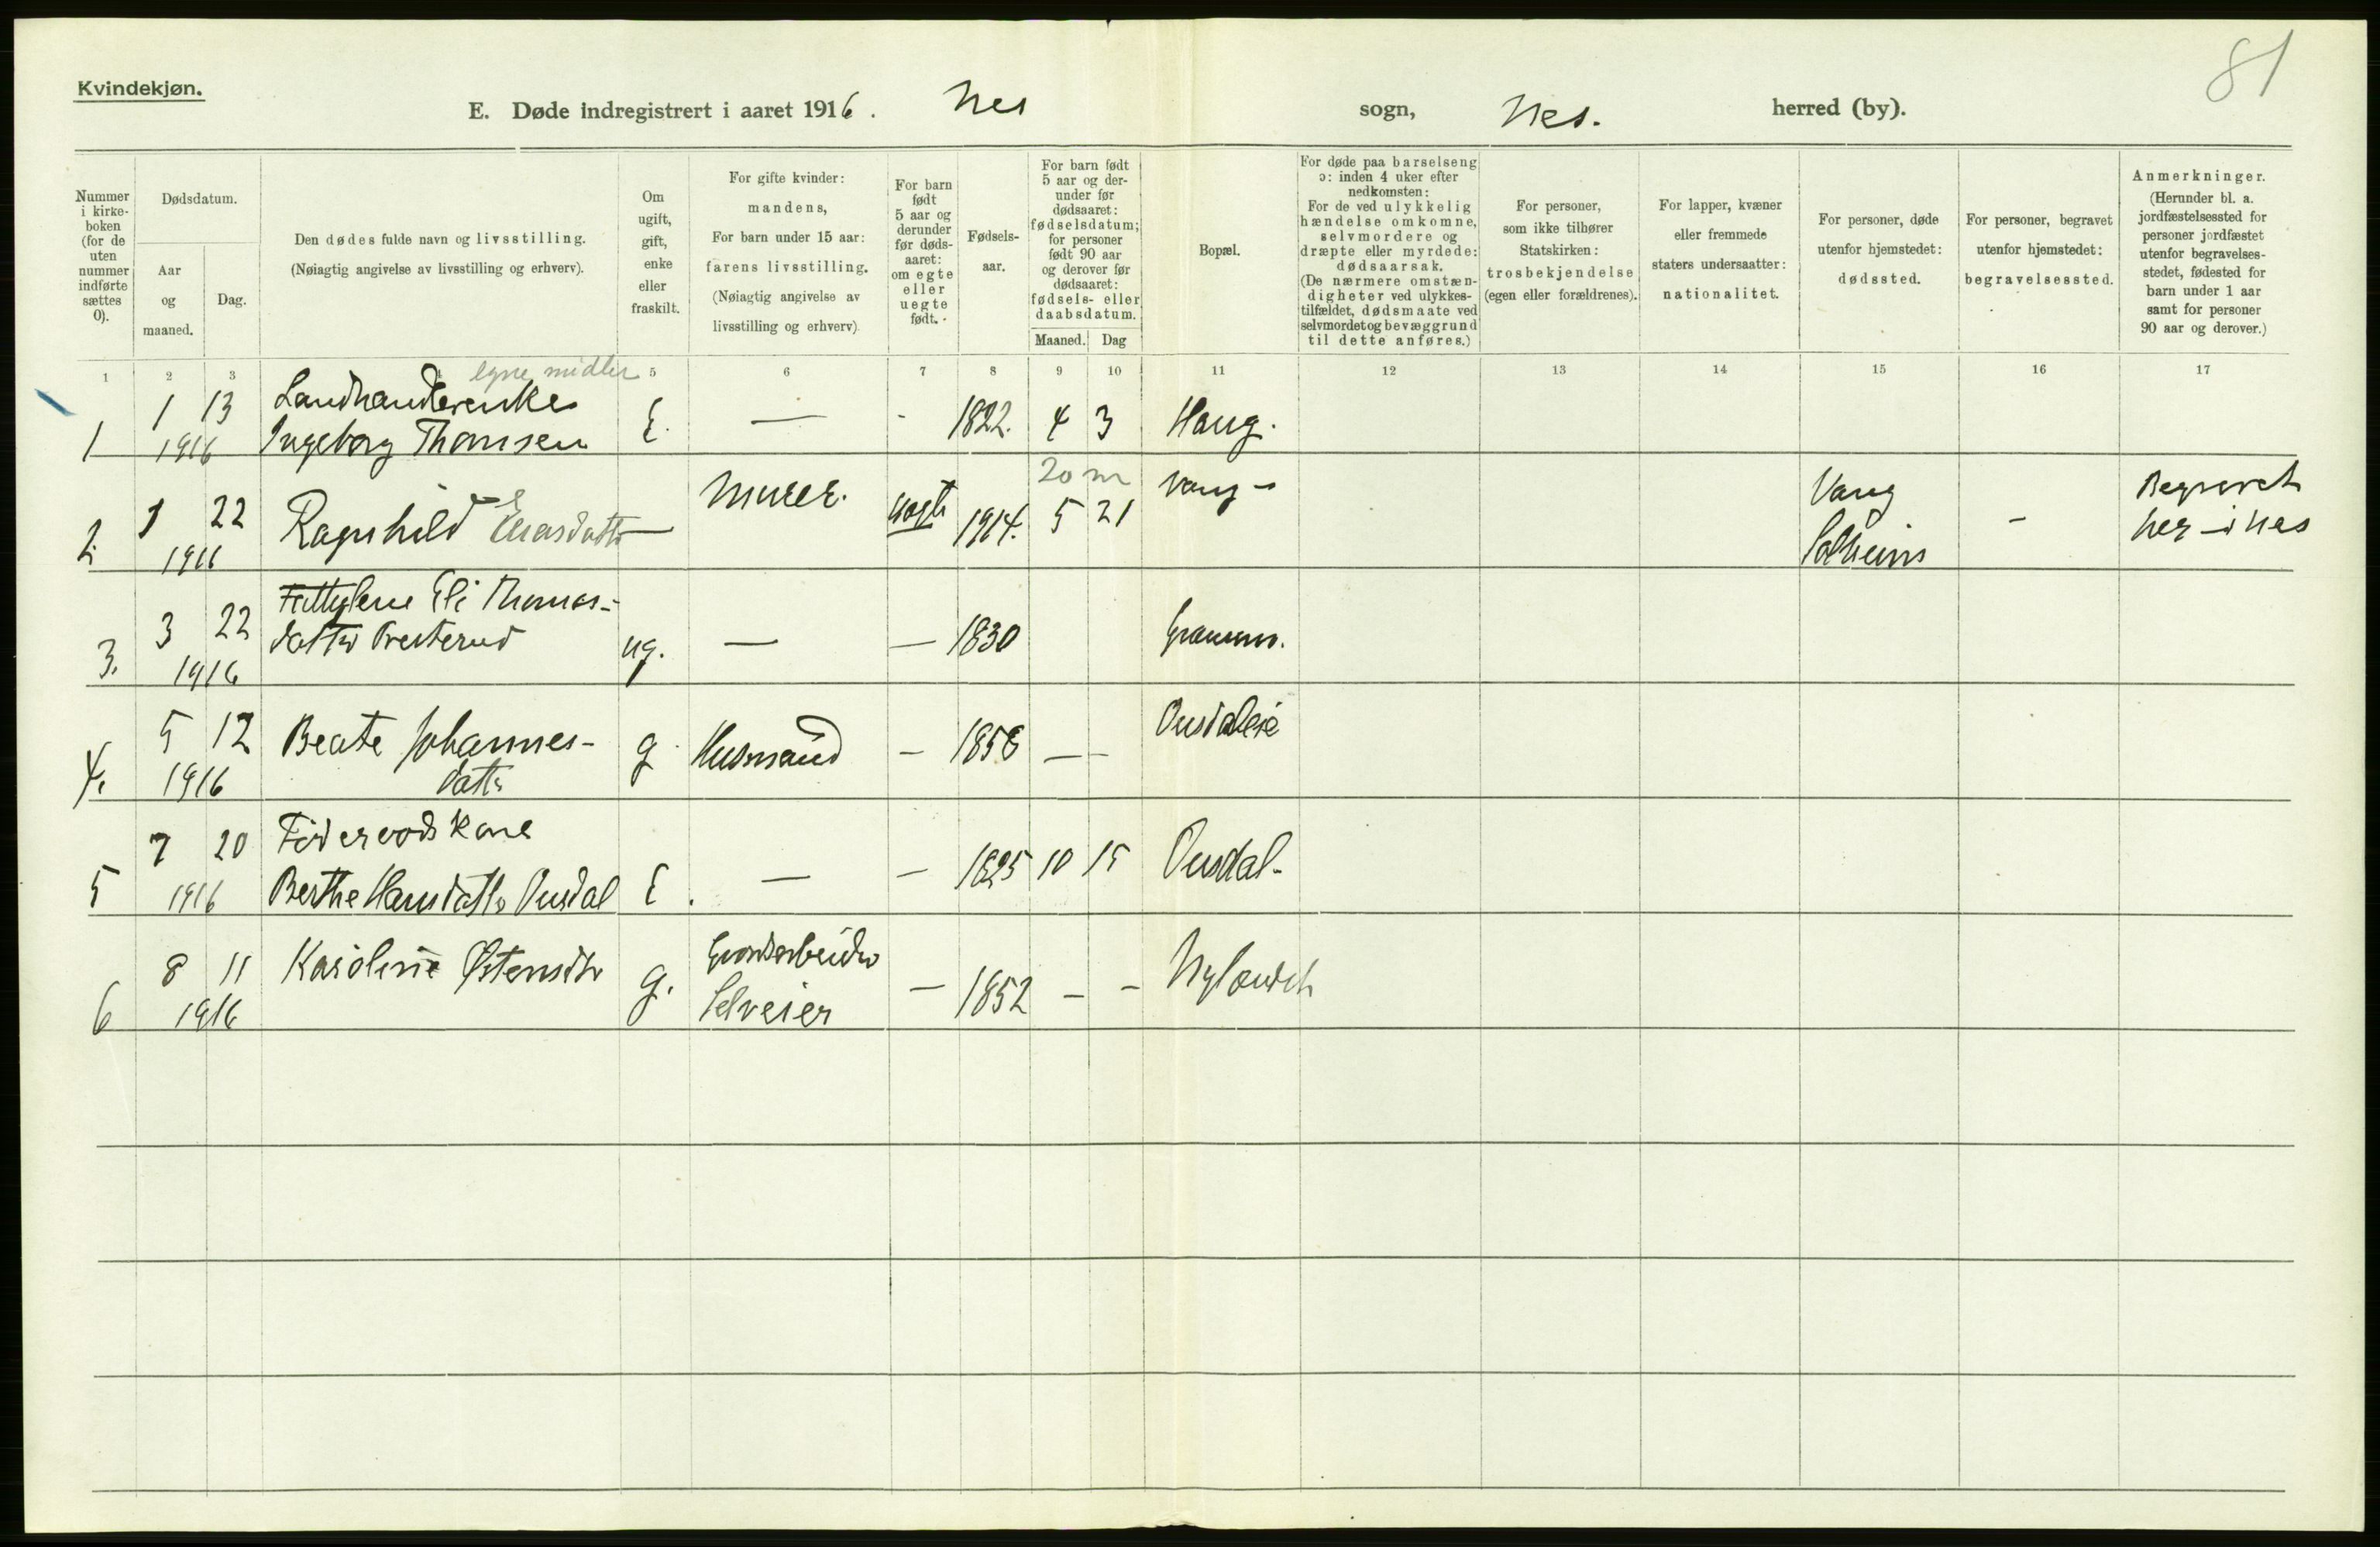 81
Kvindekjøn.
E. Døde indregistrert i aaret 1916. Nes sogn, Nes. herred (by).
Nummer i kirke-boken (for de uten nummer indførte sættes 0).
Dødsdatum.
Aar og maaned.
Dag.
Den dødes fulde navn og livsstilling.
(Nøiagtig angivelse av livsstilling og erhverv).
Om ugift, gift, enke eller fraskilt.
For gifte kvinder: mandens,
For barn under 15 aar: farens livsstilling.
(Nøiagtig angivelse av livsstilling og erhverv)
For barn født 5 aar og derunder før døds-aaret: om egte eller uegte født.
Fødsels-aar.
For barn født 5 aar og der-under før dødsaaret: fødselsdatum; for personer født 90 aar og derover før dødsaaret: fødsels- eller daabsdatum.
Maaned. Dag
Bopæl.
For døde paa barselseng ɔ: inden 4 uker efter nedkomsten:
For de ved ulykkelig hændelse omkomne, selvmordere og dræpte eller myrdede: dødsaarsak.
(De nærmere omstæn-digheter ved ulykkes-tilfældet, dødsmaate ved selvmordet og bevæggrund til dette anføres.)
For personer, som ikke tilhører Statskirken: trosbekjendelse (egen eller forældrenes).
For lapper, kvæner eller fremmede staters undersaatter: nationalitet.
For personer, døde utenfor hjemstedet: dødssted.
For personer, begravet utenfor hjemstedet: begravelsessted.
Anmerkninger.
(Herunder bl. a. jordfæstelsessted for personer jordfæstet utenfor begravelses-stedet, fødested for barn under 1 aar samt for personer 90 aar og derover.)
1 2 3 4 5 6 7 8 9 10 11 12 13 14 15 16 17
egne midler
1 1 13 Landhandlerenke E. — - 1822. 4 3 Haug.
1916 Ingeborg Thomsen
20 m
2. 1 22 Ragnhild Murer. uegte 1914. 5 21 Vang - Vang - Begravet
1916 Solheim her i Nes
3. 3 22 Eli Thomas-
1916 datter Presterud ug. — — 1830
4. 5 12 Beate Johannes- g. Husmand — 1858 — —
1916 datter
5 7 20 Føderaadskone
1916 Berthe Hansdatter Ousdal E. — — 1825 10 15 Ousdal-
6 8 11 Karoline Østensdtr g. Grovarbeider — 1852 — —
1916 Selveier